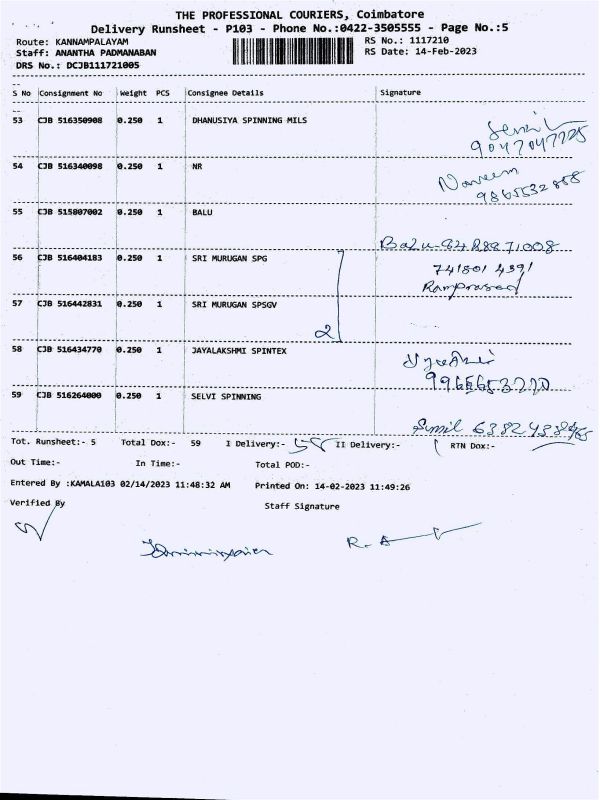 THE PROFESSIONAL COURIERS, Coimbatore
Delivery Runsheet - P103 - Phone No.:0422-3505555 - Page No.:5
Route: KANNAMPALAYAM RS No.: 1117210
Staff: ANANTHA PADMANABAN RS Date: 14-Feb-2023
DRS No.: DCJB111721005
S No Consignment No Weight PCS Consignee Details Signature
53 CJB 516350908 0.250 1 DHANUSIYA SPINNING MILS
9047047725
54 CJB 516340098 0.250 1 NR Naveem
55 CJB 515807002 0.250 1 BALU
Balu
56 CJB 516404183 0.250 1 SRI MURUGAN SPG 741801 4391
Ramprasad
57 CJB 516442831 0.250 1 SRI MURUGAN SPSGV
2
58 CJB 516434770 0.250 1 JAYALAKSHMI SPINTEX
59 CJB 516264000 0.250 1 SELVI SPINNING
Tot. Runsheet:- 5 Total Dox:- 59 I Delivery:- 58 II Delivery:- RTN Dox:-
Out Time:- In Time:- Total POD:-
Entered By :KAMALA103 02/14/2023 11:48:32 AM Printed On: 14-02-2023 11:49:26
Verified By Staff Signature